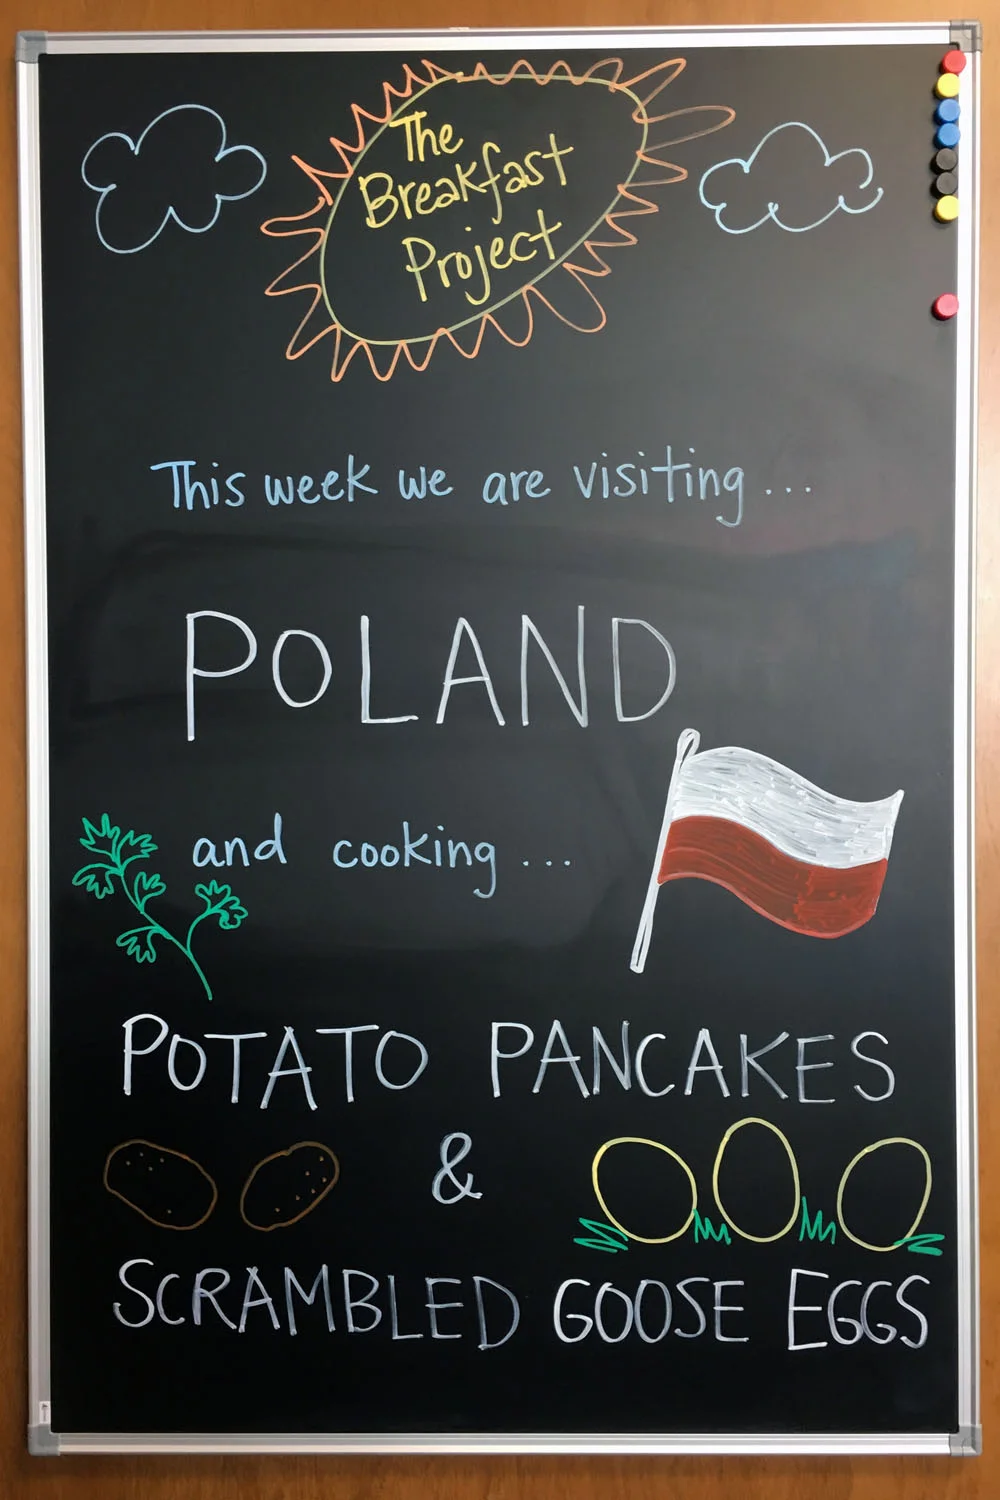 The
Breakfast
Project
This week we are visiting...
POLAND
and cooking...
POTATO PANCAKES
&
SCRAMBLED GOOSE EGGS